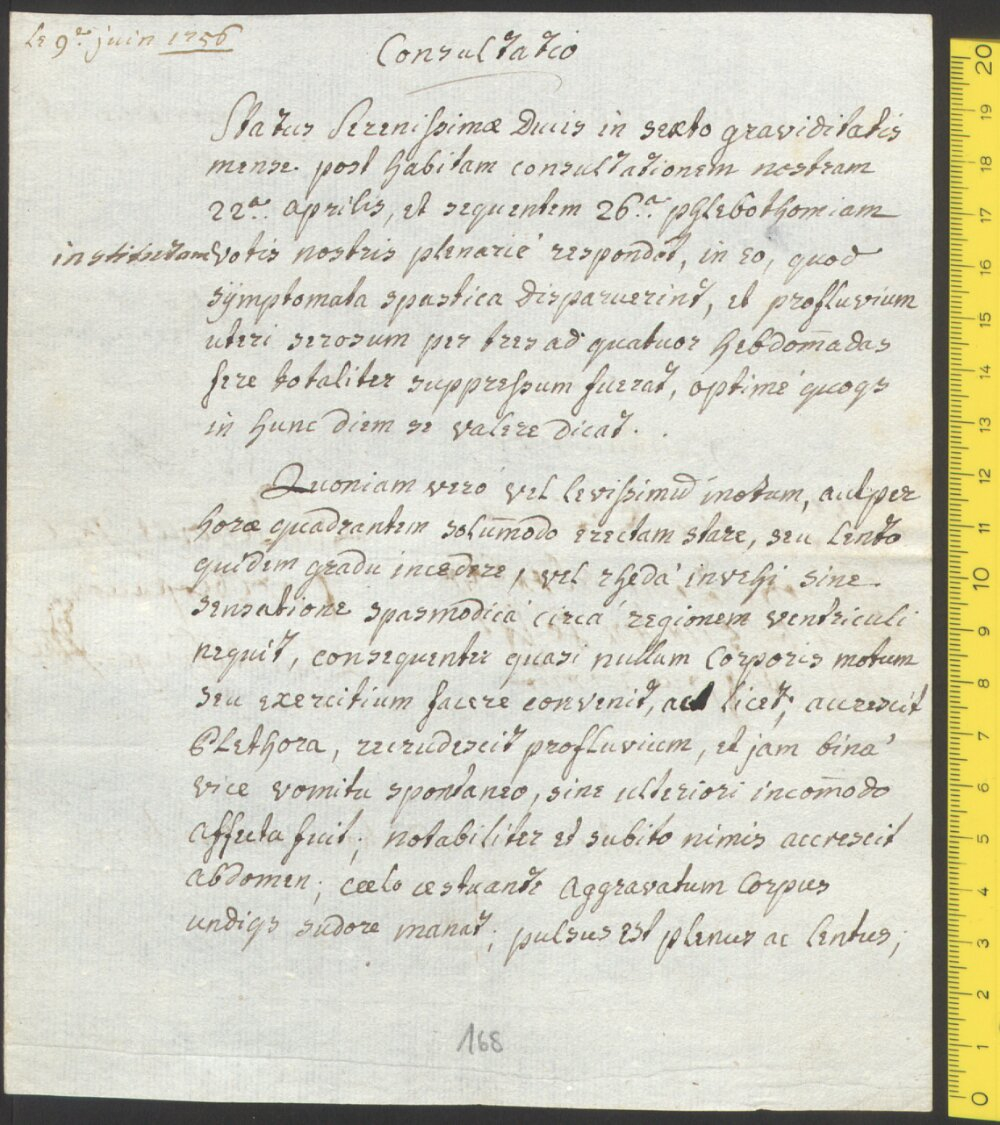 Le 9.e juin 1756
Consultatio
Status Serenissimæ Ducis in sexto graviditatis
mense. post habitam consultationem nostram
22.a aprilis, et sequentem 26.a phlebothomiam
institutam votis nostris plenarie respondet, in eo, quod
sÿmptomata spastica disparuerint, et profluvium
uteri serosum per tres ad quatuor hebdom̅adas
fere totaliter suppressum fuerat, optime quoqs
in hunc diem se valere dicat.
Quoniam vero vel levissimum motum, aut per
horæ quadrantem solum̅odo erectam stare, seu lento
quidem gradu incedere, vel rheda invehi sine
sensatione spasmodica circa regionem ventriculi
nequit, consequenter quasi nullum corporis motum
seu exercitium facere convenit, aut licet; accrescit
Plethora, recrudescit profluvium, et jam bina
vice vomitu spontaneo, sine ulteriori incom̅odo
affecta fuit; notabiliter et subito nimis accrescit
abdomen; cœlo æstuante aggravatum corpus
undiqs sudore manat; pulsus est plenus ac lentus;
168
20
19
18
17
16
15
14
13
12
11
10
9
8
7
6
5
4
3
2
1
0